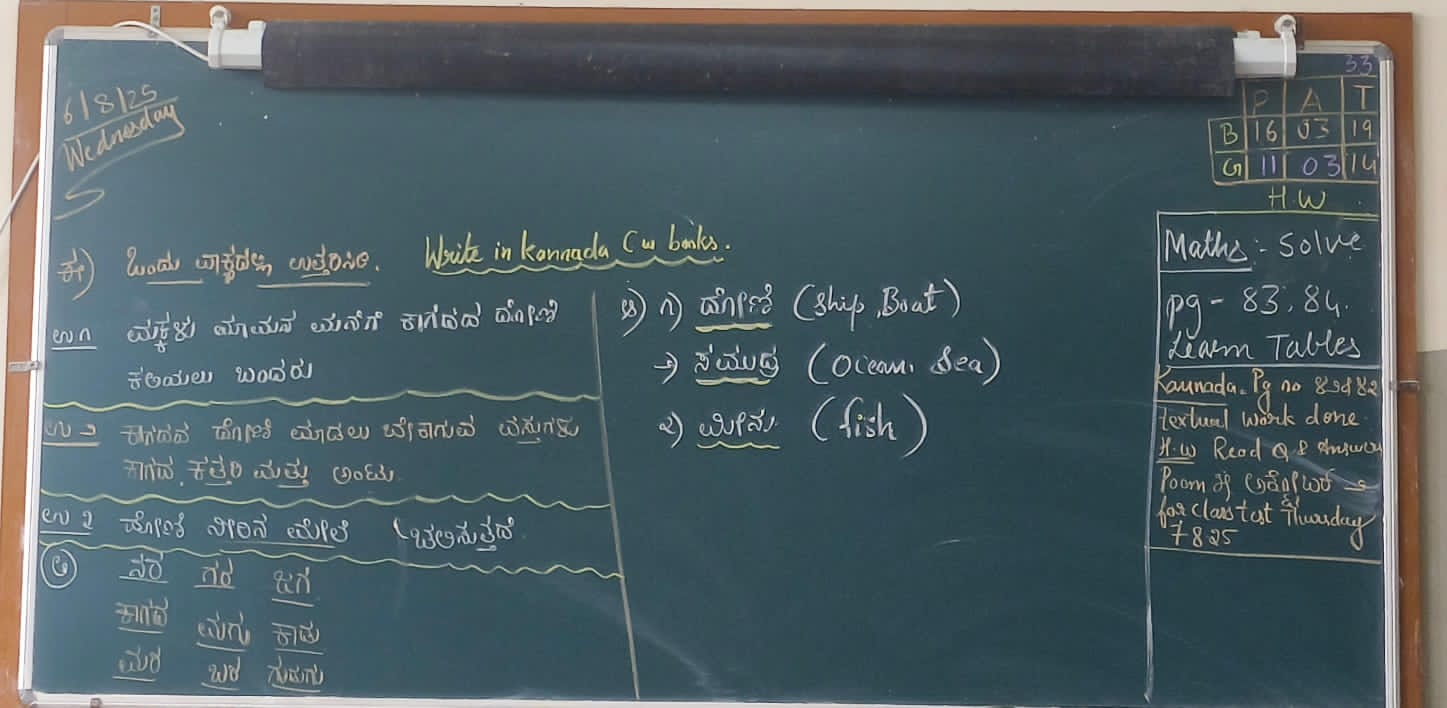 6/8/25
Wednesday
ಈ) ಒಂದು ವಾಕ್ಯದಲ್ಲಿ ಉತ್ತರಿಸಿರಿ. Write in Kannada Cw books.
ಉ ೧ ಮಕ್ಕಳು ಮಾಮನ ಮನೆಗೆ ಕಾಗದದ ದೋಣಿ
ಕಲಿಯಲು ಬಂದರು
ಉ ೨ ಕಾಗದದ ದೋಣಿ ಮಾಡಲು ಬೇಕಾಗುವ ವಸ್ತುಗಳು
ಕಾಗದ, ಕತ್ತರಿ ಮತ್ತು ಅಂಟು.
ಉ ೩ ದೋಣಿ ನೀರಿನ ಮೇಲೆ ಚಲಿಸುತ್ತದೆ.
ನರ ಗರ ಜಗ
ಕಾಗದ ಮಗು ಕಾಡು
ಮರ ಬರ ಗುಡುಗು
೧) ದೋಣಿ (Ship, Boat)
ಸಮುದ್ರ (Ocean, Sea)
ಮೀನು (fish)
33
P A T
B 16 03 19
G 11 03 14
H.W
Maths :- Solve
pg - 83, 84.
Learn Tables
Kannada - Pg no 81 & 82
Textual work done.
H.W Read Q & Answers
Poem of
for class test Thursday
7 8 25